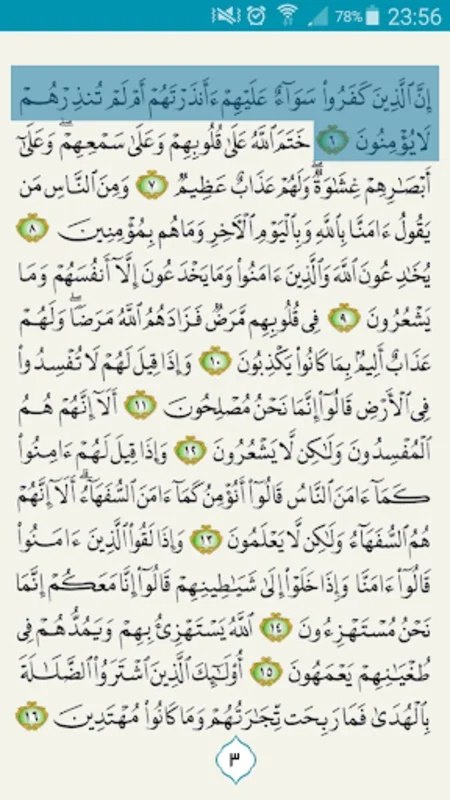 78% 23:56
إِنَّ ٱلَّذِينَ كَفَرُوا۟ سَوَآءٌ عَلَيْهِمْ ءَأَنذَرْتَهُمْ أَمْ لَمْ تُنذِرْهُمْ
لَا يُؤْمِنُونَ ٦ خَتَمَ ٱللَّهُ عَلَىٰ قُلُوبِهِمْ وَعَلَىٰ سَمْعِهِمْ ۖ وَعَلَىٰٓ
أَبْصَـٰرِهِمْ غِشَـٰوَةٌ ۖ وَلَهُمْ عَذَابٌ عَظِيمٌ ٧ وَمِنَ ٱلنَّاسِ مَن
يَقُولُ ءَامَنَّا بِٱللَّهِ وَبِٱلْيَوْمِ ٱلْـَٔاخِرِ وَمَا هُم بِمُؤْمِنِينَ ٨
يُخَـٰدِعُونَ ٱللَّهَ وَٱلَّذِينَ ءَامَنُوا۟ وَمَا يَخْدَعُونَ إِلَّآ أَنفُسَهُمْ وَمَا
يَشْعُرُونَ ٩ فِى قُلُوبِهِم مَّرَضٌ فَزَادَهُمُ ٱللَّهُ مَرَضًا ۖ وَلَهُمْ
عَذَابٌ أَلِيمٌۢ بِمَا كَانُوا۟ يَكْذِبُونَ ١٠ وَإِذَا قِيلَ لَهُمْ لَا تُفْسِدُوا۟
فِى ٱلْأَرْضِ قَالُوٓا۟ إِنَّمَا نَحْنُ مُصْلِحُونَ ١١ أَلَآ إِنَّهُمْ هُمُ
ٱلْمُفْسِدُونَ وَلَـٰكِن لَّا يَشْعُرُونَ ١٢ وَإِذَا قِيلَ لَهُمْ ءَامِنُوا۟
كَمَآ ءَامَنَ ٱلنَّاسُ قَالُوٓا۟ أَنُؤْمِنُ كَمَآ ءَامَنَ ٱلسُّفَهَآءُ ۗ أَلَآ إِنَّهُمْ
هُمُ ٱلسُّفَهَآءُ وَلَـٰكِن لَّا يَعْلَمُونَ ١٣ وَإِذَا لَقُوا۟ ٱلَّذِينَ ءَامَنُوا۟
قَالُوٓا۟ ءَامَنَّا وَإِذَا خَلَوْا۟ إِلَىٰ شَيَـٰطِينِهِمْ قَالُوٓا۟ إِنَّا مَعَكُمْ إِنَّمَا
نَحْنُ مُسْتَهْزِءُونَ ١٤ ٱللَّهُ يَسْتَهْزِئُ بِهِمْ وَيَمُدُّهُمْ فِى
طُغْيَـٰنِهِمْ يَعْمَهُونَ ١٥ أُو۟لَـٰٓئِكَ ٱلَّذِينَ ٱشْتَرَوُا۟ ٱلضَّلَـٰلَةَ
بِٱلْهُدَىٰ فَمَا رَبِحَت تِّجَـٰرَتُهُمْ وَمَا كَانُوا۟ مُهْتَدِينَ ١٦
٣